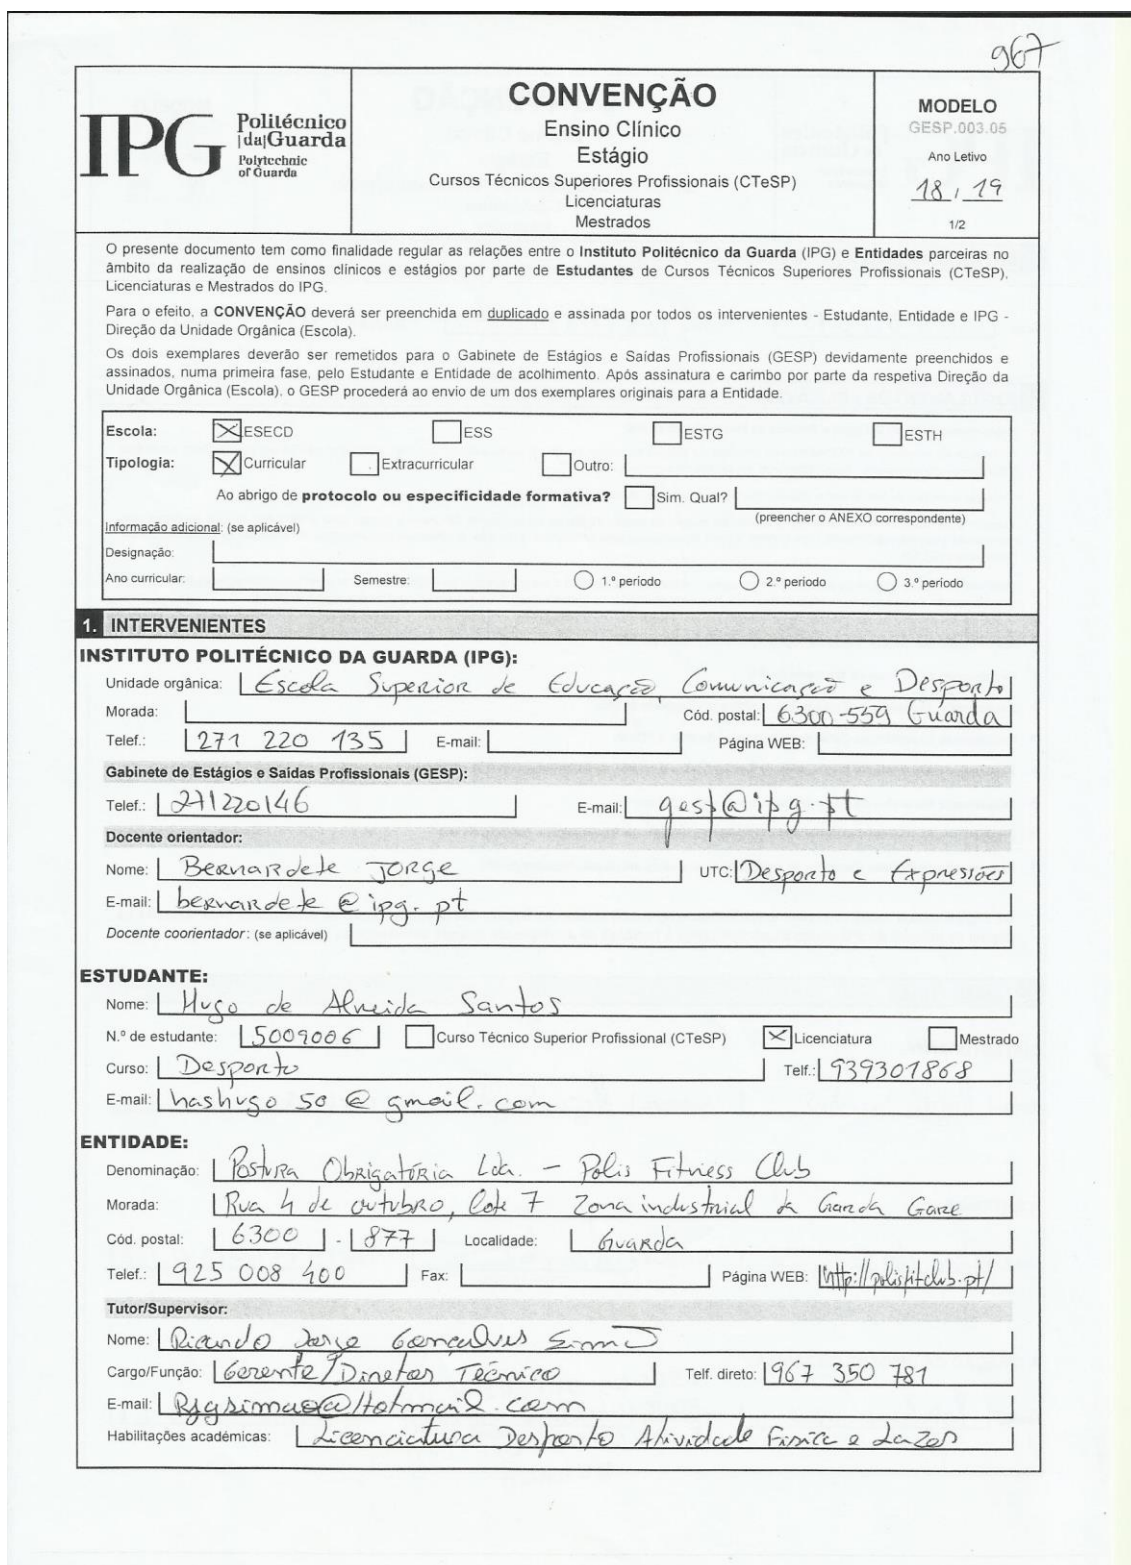 967
IPG Politécnico |da|Guarda Polytechnic of Guarda
CONVENÇÃO
Ensino Clínico
Estágio
Cursos Técnicos Superiores Profissionais (CTeSP)
Licenciaturas
Mestrados
MODELO
GESP.003.05
Ano Letivo
18 / 19
1/2
O presente documento tem como finalidade regular as relações entre o Instituto Politécnico da Guarda (IPG) e Entidades parceiras no
âmbito da realização de ensinos clínicos e estágios por parte de Estudantes de Cursos Técnicos Superiores Profissionais (CTeSP),
Licenciaturas e Mestrados do IPG.
Para o efeito, a CONVENÇÃO deverá ser preenchida em duplicado e assinada por todos os intervenientes - Estudante, Entidade e IPG -
Direção da Unidade Orgânica (Escola).
Os dois exemplares deverão ser remetidos para o Gabinete de Estágios e Saídas Profissionais (GESP) devidamente preenchidos e
assinados, numa primeira fase, pelo Estudante e Entidade de acolhimento. Após assinatura e carimbo por parte da respetiva Direção da
Unidade Orgânica (Escola), o GESP procederá ao envio de um dos exemplares originais para a Entidade.
Escola: ESECD ESS ESTG ESTH
Tipologia: Curricular Extracurricular Outro:
Ao abrigo de protocolo ou especificidade formativa? Sim. Qual?
(preencher o ANEXO correspondente)
Informação adicional: (se aplicável)
Designação:
Ano curricular: Semestre: 1.º período 2.º período 3.º período
1. INTERVENIENTES
INSTITUTO POLITÉCNICO DA GUARDA (IPG):
Unidade orgânica: Escola Superior de Educação, Comunicação e Desporto
Morada: Cód. postal: 6300-559 Guarda
Telef.: 271 220 135 E-mail: Página WEB:
Gabinete de Estágios e Saídas Profissionais (GESP):
Telef.: 271220146 E-mail: gesp@ipg.pt
Docente orientador:
Nome: Bernardete Jorge UTC: Desporto e Expressões
E-mail: bernardete@ipg.pt
Docente coorientador: (se aplicável)
ESTUDANTE:
Nome: Hugo de Almeida Santos
N.º de estudante: 5009006 Curso Técnico Superior Profissional (CTeSP) Licenciatura Mestrado
Curso: Desporto Telf.: 939301868
E-mail: hashugo50@gmail.com
ENTIDADE:
Denominação: Postura Obrigatória Lda. - Polis Fitness Club
Morada: Rua 4 de outubro, Lote 7 Zona industrial da Guarda Gare
Cód. postal: 6300 - 877 Localidade: Guarda
Telef.: 925 008 400 Fax: Página WEB: http://polisfitclub.pt/
Tutor/Supervisor:
Nome: Ricardo Jorge Gonçalves Simão
Cargo/Função: Gerente/Diretor Técnico Telf. direto: 967 350 781
E-mail: Rjgsimao@Hotmail.com
Habilitações académicas: Licenciatura Desporto Atividade Física e Lazer